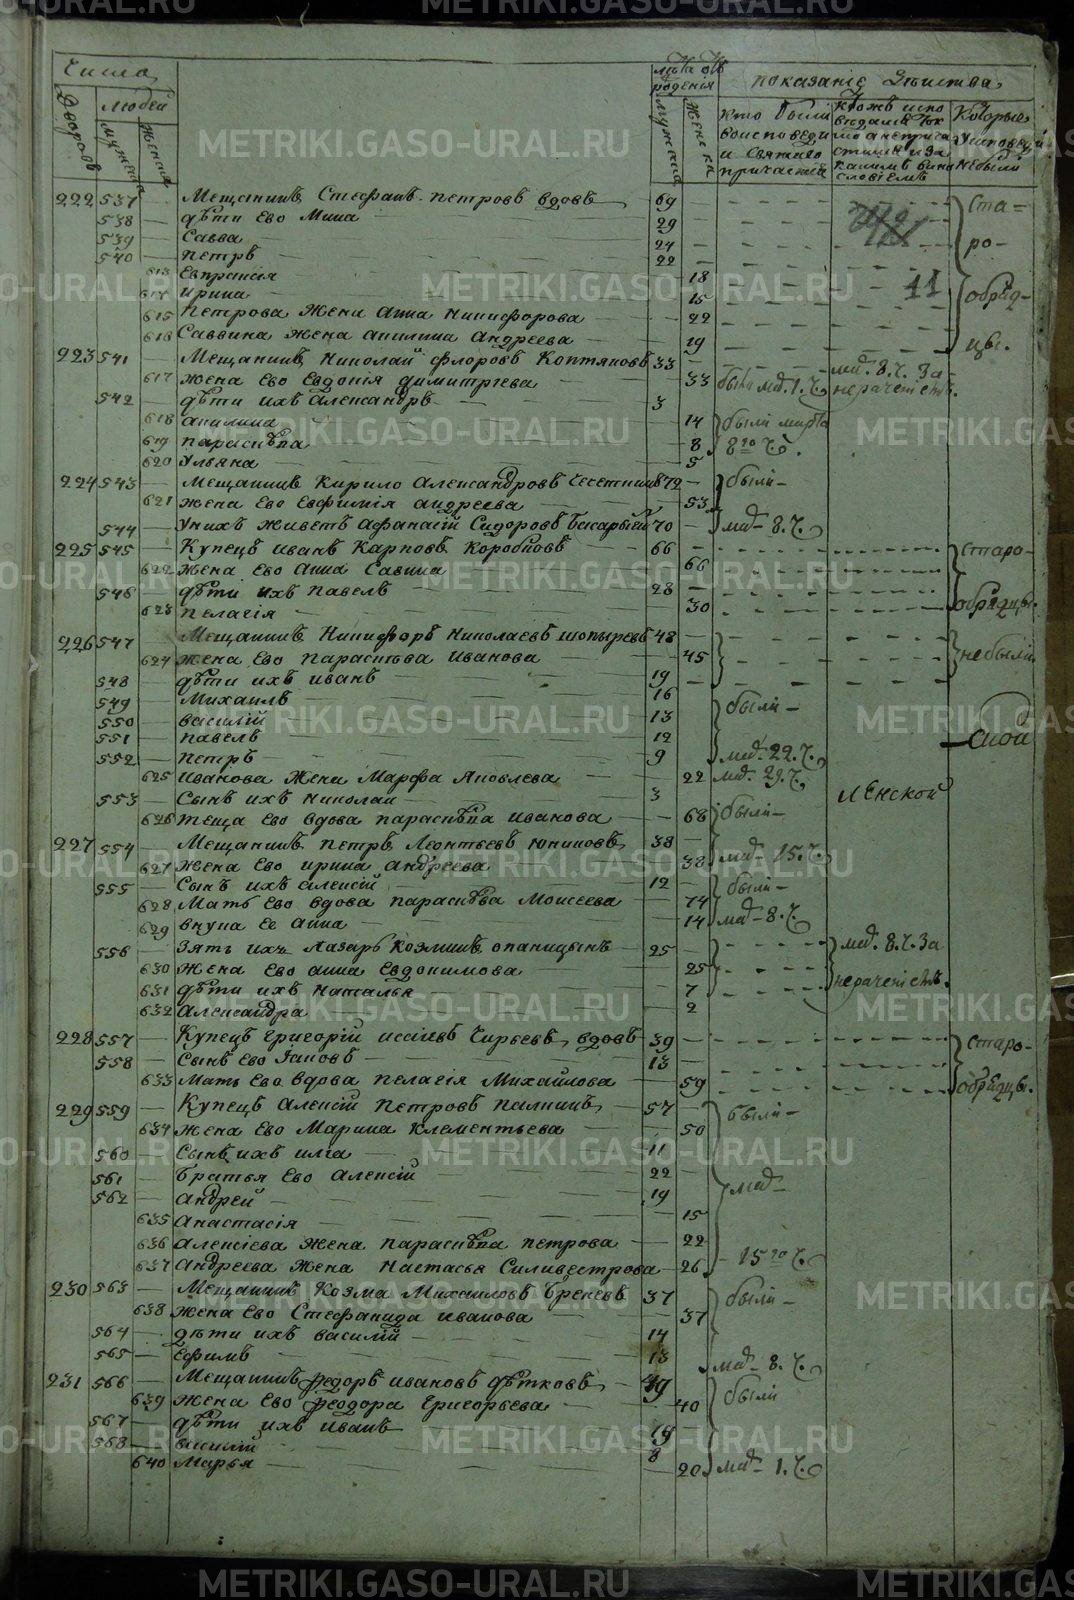 Число
Дворовъ
Людей
мужеска
женска
лѣта отъ рожденія
мужеска
женска
показаніе дѣйства
кто были во исповѣди и святаго причастія
Которые у исповеди не были
222 537 — Мещанинъ Стефанъ Петровъ вдовъ 69
538 — дѣти Ево Мина 29
539 — Савва 24
540 — Петръ 22
613 Евпраксія 18
614 Ирина 15
615 Петрова Жена Анна Никифорова 22
616 Саввина Жена Акилина Андреева 19
Старообрядцы.
11
223 541 — Мещанинъ Николай Флоровъ Коптяковъ 33 мар. 8. ч. За нераченіемъ.
617 Жена Ево Евдокія Димитріева 33 была мар. 1. ч.
542 — дѣти ихъ Александръ 3
618 Акилина 14 были марта
619 Парасковья 8 8го ч.
620 Ульяна 5
224 543 — Мещанинъ Кирило Александровъ 72 — были —
621 Жена Ево Евфимія Андреева 53
544 — У нихъ живетъ Афанасій Сидоровъ 70 — мар — 8. ч.
225 545 — Купецъ Иванъ Карповъ Коробковъ 66 Старообрядцы.
622 Жена Ево Анна Савина 66
546 — дѣти ихъ Павелъ 28
623 Пелагія 30
226 547 — Мещанинъ Никифоръ Николаевъ Шопыревъ 48 не были
624 Жена Ево Параскова Иванова 45
548 — дѣти ихъ Иванъ 19
549 — Михаилъ 16 были —
550 — Василій 13
551 — Павелъ 12
552 — Петръ 9 мар. 22. ч.
625 Иванова Жена Марфа Яковлева 22 мар. 29. ч.
553 — Сынъ ихъ Николай 3
ленской
626 Теща Ево вдова Парасковья Иванова 68 были —
227 554 — Мещанинъ Петръ Леонтьевъ Юниковъ 38 —
627 Жена Ево Ирина Андреева 38 мар — 15. ч.
555 — Сынъ ихъ Алексій 12 — были —
628 Мать Ево вдова Парасковья Моисеева 74
629 внука Ее Анна 14 мар — 8. ч.
556 — Зять ихъ Лазарь Козминъ Опаницынъ 25 мар. 8. ч. За нераченіемъ.
630 Жена Ево Анна Евдокимова 25
631 дѣти ихъ Наталья 7
632 Александра 2
228 557 — Купецъ Григорій Исаіевъ Чирьевъ, вдовъ 39 Старообрядцы.
558 — Сынъ Ево Іаковъ 13
633 Мать Ево вдова Пелагія Михайлова 59
229 559 — Купецъ Алексій Петровъ Палкинъ 57 — были —
634 Жена Ево Марина Клементьева 50
560 — Сынъ ихъ Илія 11
561 — Братья Ево Алексій 22 —
562 — Андрей 19 мар —
635 Анастасія 15
636 Алексіева Жена Парасковья Петрова 22
637 Андреева Жена Настасья Силивестрова 26 15го ч.
230 563 — Мещанинъ Козма Михаиловъ Брекевъ 37 были —
638 Жена Ево Стефанида Иванова 37
564 — дѣти ихъ Василій 14
565 — Ефимъ 13 мар — 8. ч.
231 566 — Мещанинъ Федоръ Ивановъ Дѣтковъ 49
639 Жена Ево Феодора Григорьева 40 были
567 — дѣти ихъ Иванъ 19
568 — Василій 8
640 Марья 20 мар — 1. ч.
METRIKI.GASO-URAL.RU